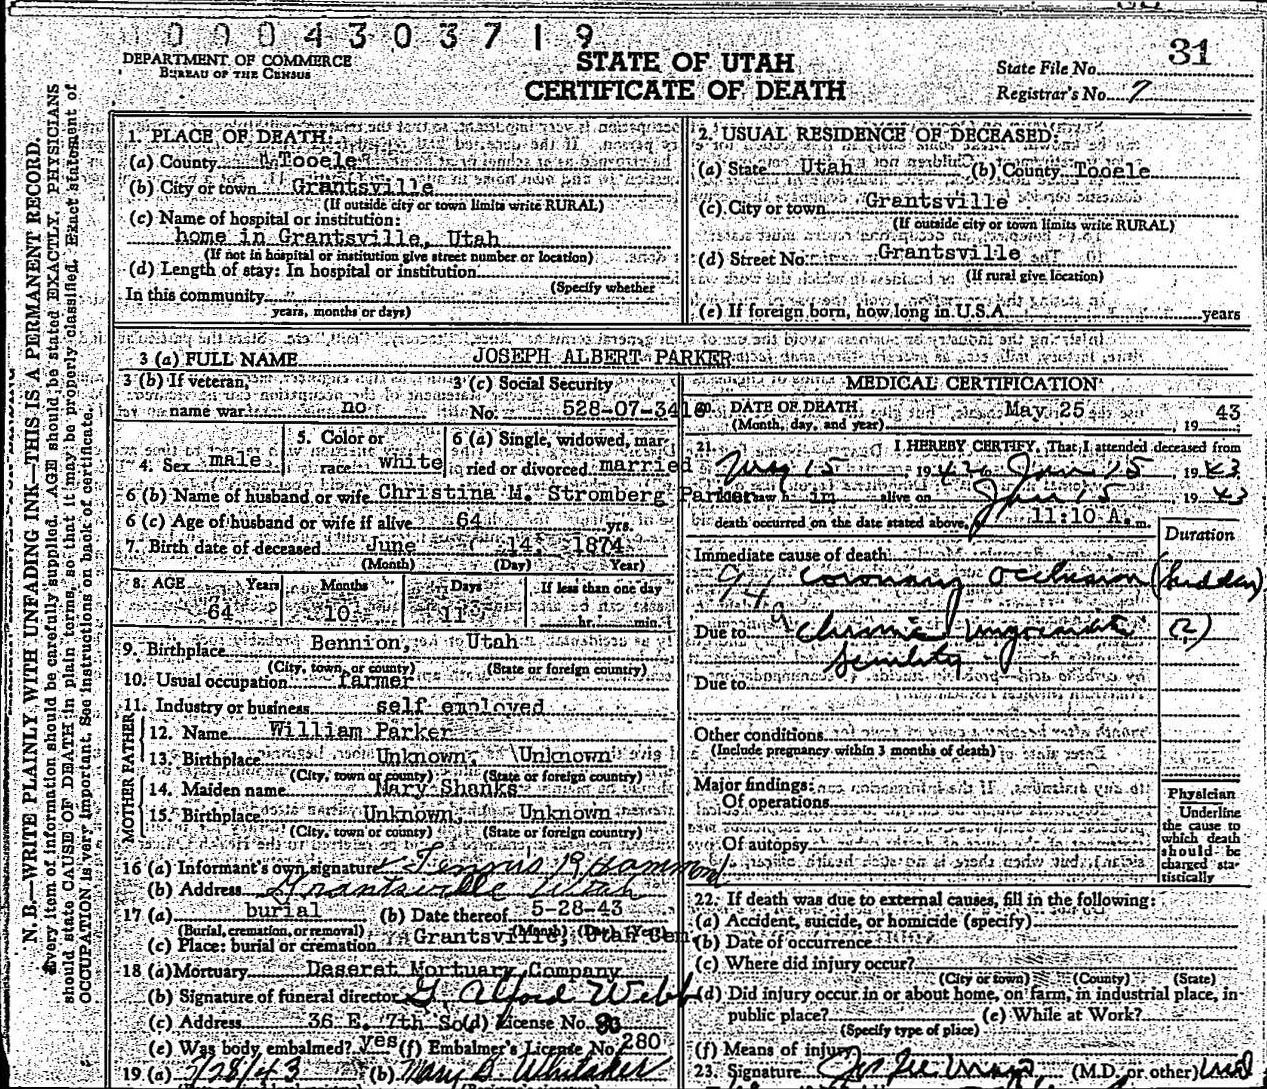 0 0 0 4 3 0 3 7 1 9
DEPARTMENT OF COMMERCE
BUREAU OF THE CENSUS
STATE OF UTAH
CERTIFICATE OF DEATH
State File No. 31
Registrar's No. 7
N. B.—WRITE PLAINLY WITH UNFADING INK—THIS IS A PERMANENT RECORD.
Every item of information should be carefully supplied. AGE should be stated EXACTLY. PHYSICIANS
should state CAUSE OF DEATH in plain terms, so that it may be properly classified. Exact statement of
OCCUPATION is very important. See instructions on back of certificate.
1. PLACE OF DEATH:
(a) County Tooele
(b) City or town Grantsville
(If outside city or town limits write RURAL)
(c) Name of hospital or institution:
home in Grantsville, Utah
(If not in hospital or institution give street number or location)
(d) Length of stay: In hospital or institution
(Specify whether
In this community
years, months or days)
2. USUAL RESIDENCE OF DECEASED:
(a) State Utah (b) County Tooele
(c) City or town Grantsville
(If outside city or town limits write RURAL)
(d) Street No. Grantsville
(If rural give location)
(e) If foreign born, how long in U.S.A. years
3 (a) FULL NAME JOSEPH ALBERT PARKER
3 (b) If veteran,
name war no
3 (c) Social Security
No. 528-07-341
4. Sex male
5. Color or
race white
6 (a) Single, widowed, mar-
ried or divorced. married
6 (b) Name of husband or wife Christina M. Stromberg Parker
6 (c) Age of husband or wife if alive 64 yrs.
7. Birth date of deceased June 14, 1874
(Month) (Day) Year)
8. AGE Years Months Days If less than one day
64 10 11 hr. min.
9. Birthplace Bennion, Utah
(City, town, or county) (State or foreign country)
10. Usual occupation farmer
11. Industry or business self employed
FATHER
12. Name William Parker
13. Birthplace Unknown, Unknown
(City, town or county) (State or foreign country)
MOTHER
14. Maiden name Mary Shanks
15. Birthplace Unknown, Unknown
(City, town or county) (State or foreign country)
16 (a) Informant's own signature
(b) Address Grantsville Utah
17 (a) burial (b) Date thereof 5-28-43
(Burial, cremation, or removal) (Month) (Day) (Year)
(c) Place: burial or cremation Grantsville, Utah Cem
18 (a) Mortuary Deseret Mortuary Company
(b) Signature of funeral director G. Alford Webb
(c) Address 36 E. 7th So (d) License No.
(e) Was body embalmed? yes (f) Embalmer's License No. 280
19 (a) (b) Mary B. Whitaker
MEDICAL CERTIFICATION
20. DATE OF DEATH May 25 19 43
(Month, day, and year)
21. I HEREBY CERTIFY, That I attended deceased from
15, 19 Jan 15 19 43
saw h im alive on Jan 15 19 43
death occurred on the date stated above, 11:10 A. m.
Duration
Immediate cause of death
coronary occlusion (sudden)
Due to chronic (2)
senility
Due to
Other conditions
(Include pregnancy within 3 months of death)
Major findings:
Of operations
Of autopsy
Physician
Underline
the cause to
which death
should be
charged sta-
tistically
22. If death was due to external causes, fill in the following:
(a) Accident, suicide, or homicide (specify)
(b) Date of occurrence
(c) Where did injury occur?
(City or town) (County) (State)
(d) Did injury occur in or about home, on farm, in industrial place, in
public place? (e) While at Work?
(Specify type of place)
(f) Means of injury
23. Signature (M.D. or other)